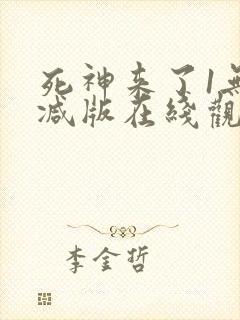 死神来了1無
减版在綫觀
李金哲